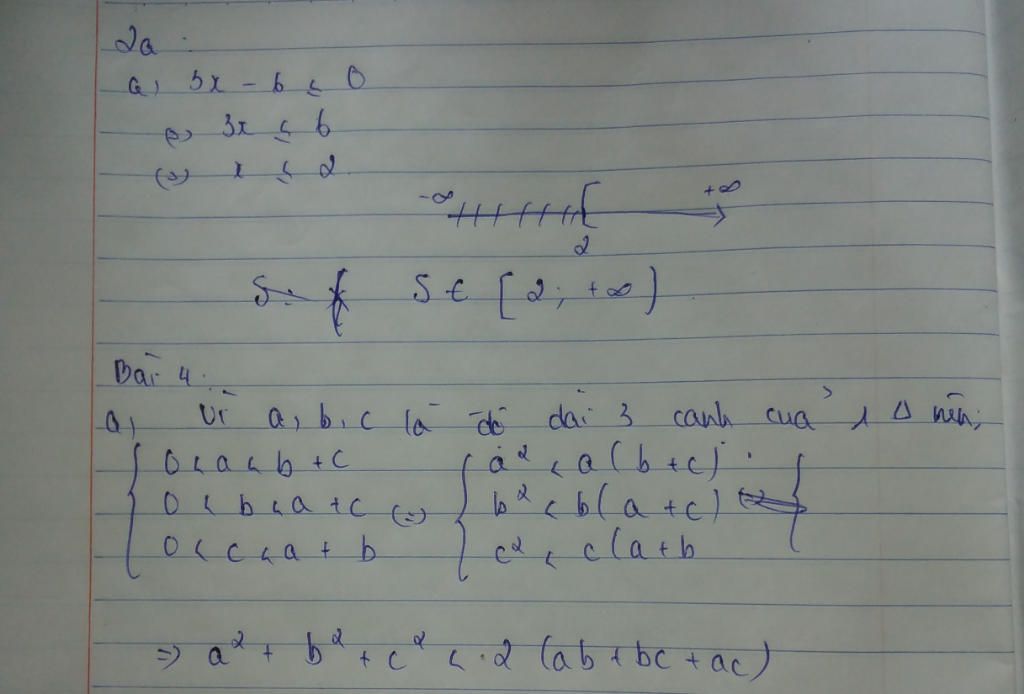 2a :
a, 3x - 6 ≤ 0
(=) 3x ≤ 6
(=) x ≤ 2.
-∞ +∞
2
S ∈ [2; +∞)
Bài 4.
a, Vì a, b, c là độ dài 3 canh cua 1 Δ nên;
{ 0 < a < b + c { a² < a(b+c) {
0 < b < a + c (=) b² < b(a+c)
0 < c < a + b c² < c(a+b
=> a² + b² + c² < 2 (ab + bc + ac)